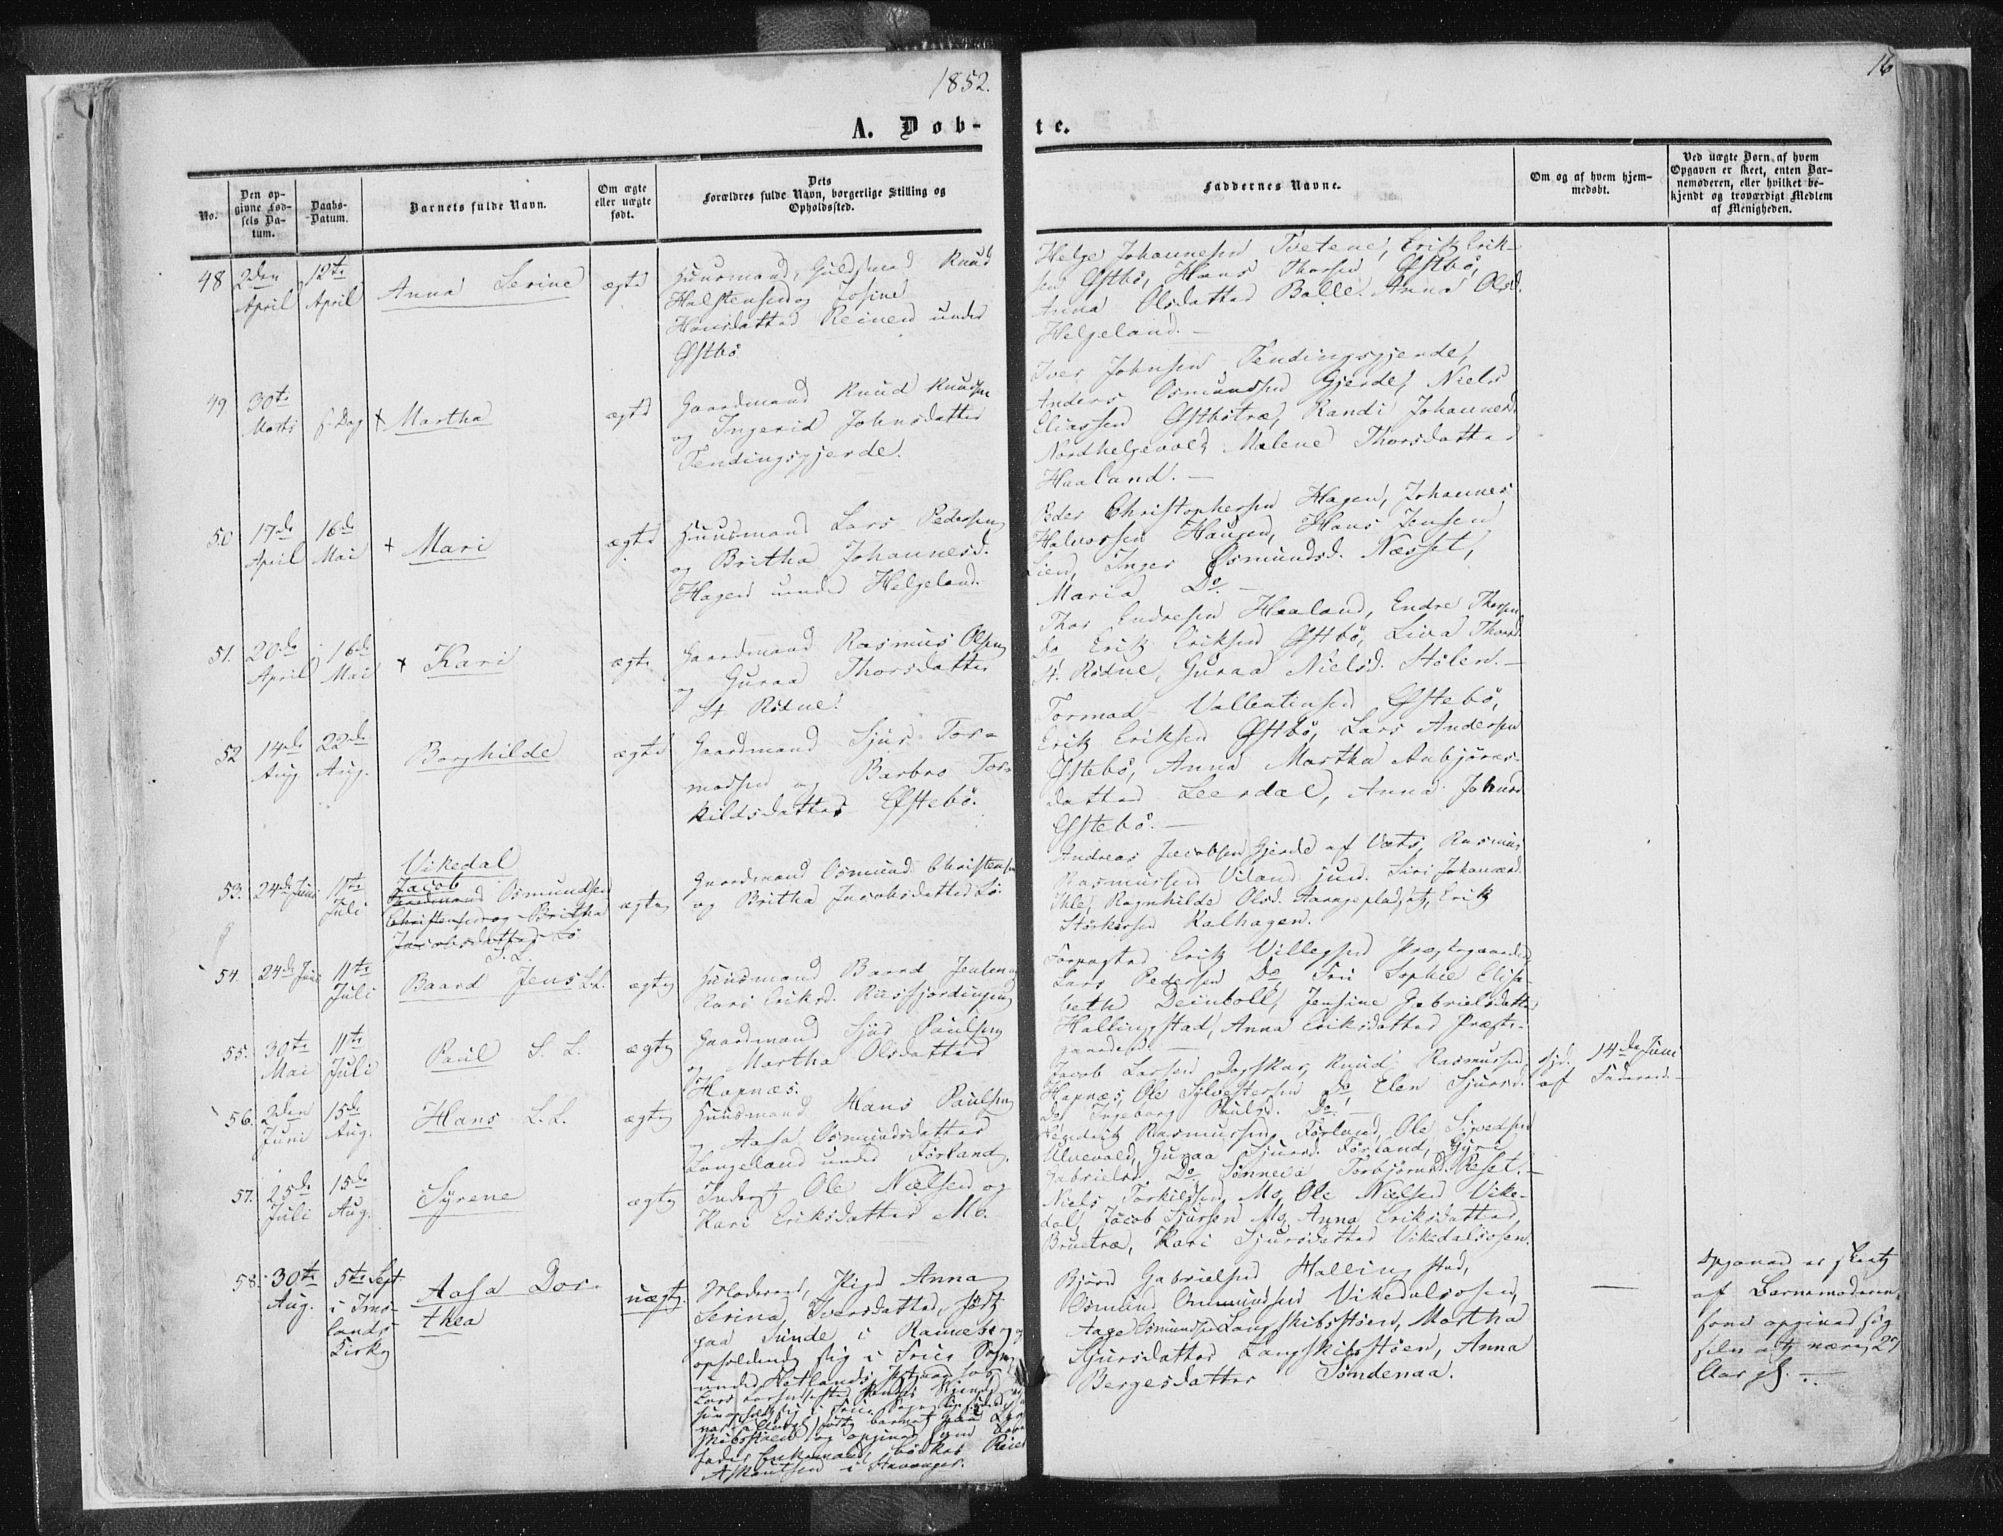 1852.
16
A. Døb-
te.
No.
Den op-
givne Fød-
sels Da-
tum.
Daabs-
Datum.
Barnets fulde Navn.
Om ægte
eller uægte
født.
Dets
Forældres fulde Navn, borgerlige Stilling og
Opholdssted.
Faddernes Navne.
Om og af hvem hjem-
medøbt.
Ved uægte Børn, af hvem
Opgaven er skeet, enten Bar-
nemoderen, eller hvilket be-
kjendt og troværdigt Medlem
af Menigheden.
48
2den
April
12te
April
Anna Serine
ægte
Huusmand, Guldsmed Knud
Halstensen og Josine
Hansdatter Reinen under
Østbø
Helge Johannesen Tvetene, Erik Erik-
sen Østbø, Hans Thorsen Østbø,
Anna Olsdatter Balle. Anna Olsd.
Helgeland. —
49
30te
Marts
s. Dag
+ Martha
ægte
Gaardmand Knud Knudsen
og Ingerid Johnsdatter
Tendingsgjerde.
Iver Johnsen Tendingsgjerde,
Anders Osmundsen Gjerde, Niels
Eliassen Østbøtræ, Randi Johannesd.
Nordhelgevold, Malene Thorsdatter
Haaland. —
50
17de
April
16de
Mai
+ Mari
ægte
Huusmand Lars Pedersen
og Britha Johannesd.
Hagen under Helgeland.
Peder Christophersen Hagen, Johannes
Halvorsen Haugen, Hans Jensen
Lien, Inger Osmundsd. Næsset,
Maria Do —
51.
20de
April
16de
Mai
+ Kari
ægte
Gaardmand Rasmus Olsen
og Guraa Thorsdatter
St. Rødne.
Thor Endresen Haaland, Endre Thorsen
Do Erik Eriksen Østbø, Liva Thorsd.
St. Rødne, Guraa Nielsd. Stølen. —
52
14de
Aug
22de
Aug.
Borghilde
ægte
Gaardmand Sjur Tor-
modsen og Barbro Tor-
kildsdatter Østebø.
Tormod Vallentinsen Østebø,
Erik Eriksen Østbø, Lars Andersen
Østebø, Anna Martha Aubjørns-
datter Leerdal, Anna Johnsd.
Østebø. —
53.
24de Juni
11te
Juli
Vikedal
Jacob
Gaardmand Osmundsen
Christensen og Britha
Jacobsdatter Lø
ægte
Gaardmand Osmund Christensen
og Britha Jacobsdatter Lø.
Andreas Jacobsen Gjerde af Vats, Rasmus
Rasmussen Viland jun. Siri Johannesd.
Ihle, Ragnhilde Olsd. Erik
Størkersen Kalhagen.
54.
24de Juni
11te
Juli
S. L.
Baard Jens L.L.
ægte
Huusmand Baard Jensen og
Kari Eriksd. Ruusfjordingen
Erik Villegsen Præstegaarden
Lars Pedersen Do, Frue Sophie Elisa-
beth Deinboll, Jensine Gabrielsdatter
Hallingstad, Anna Eriksdatter Præste-
gaarden. —
55.
30te
Mai
11te
Juli
Paul S. L.
ægte
Gaardmand Sjur Paulsen
og Martha Olsdatter
Hapnæs.
Jacob Larsen Dagskar, Knud Rasmussen
Hapnæs, Ole Sylvestersen Do, Elen Sjursd.
Do, Ingeborg Paulsd. Do. —
Hjd. 14de Juni
af Faderen. —
56.
2den
Juni
15de
Aug.
Hans L.L.
ægte
Huusmand Hans Paulsen
og Aasa Osmundsdatter
Langeland under Førland.
Hendrik Rasmussen Førland, Ole Sivertsen
Ulvevold, Guraa Sjursd. Førland, Gyri
Gabrielsd. Do, Sønneva Torbjørnsd. Reset. —
57.
25de
Juli
15de
Aug.
Syrene
ægte
Inderst Ole Nielsen og
Kari Eriksdatter Mo.
Niels Torkildsen Mo, Ole Nielsen Vike-
dal, Jacob Sjursen Mo, Anna Eriksdatter
Bruetræ, Kari Sjursdatter Vikedalsosen.
58.
30te
Aug.
5te Sept
i Ims-
lands
Kirke
Aasa Dor-
thea
uægte
Moderen, Pige Anna
Serina Iversdatter, født
paa Sunde i
opholdende sig i Sogn
under Hetlands
i
født barnet paa
og opgivet som Barne-
fader Enkemand, bødker
i Stavanger.
Bjørn Gabrielsen Hallingstad,
Osmund Ommundsen Vikedalsosen,
Aage Osmundsen Langskibstøen, Martha
Sjursdatter Langskibstøen, Anna
Børgesdatter Søndenaa.
—
Opgaven er skeet
af Barnemoderen,
som opgiver sig
selv at være 27
Aar gl. —